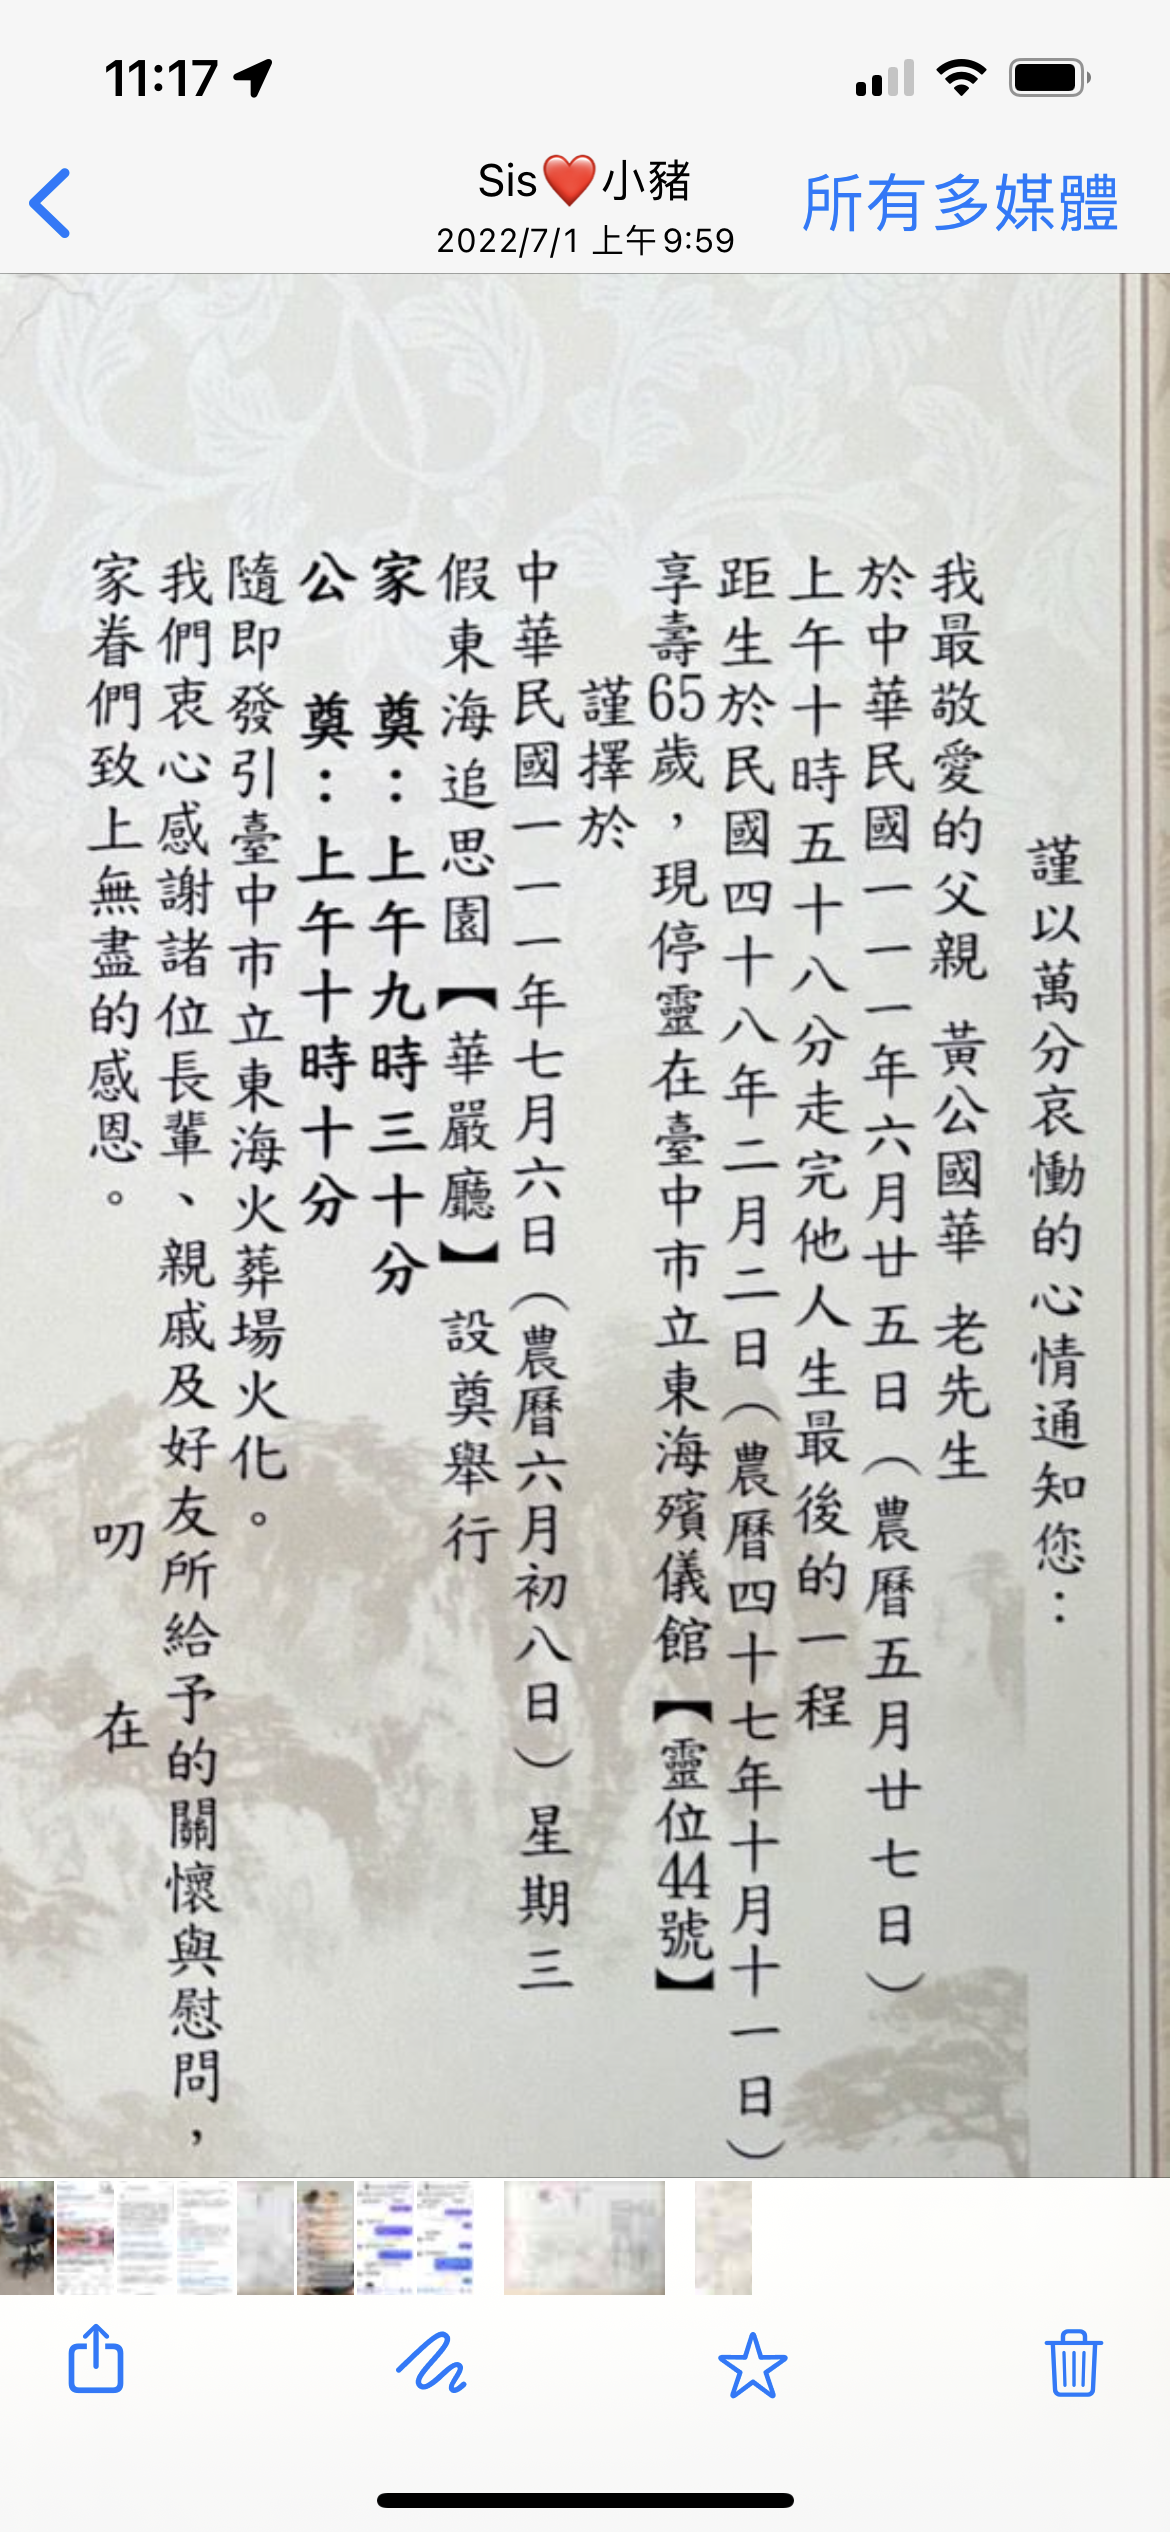 11:17
Sis❤️小豬
2022/7/1 上午9:59
所有多媒體
謹以萬分哀慟的心情通知您：
我最敬愛的父親 黃公國華 老先生
於中華民國一一一年六月廿五日（農曆五月廿七日）
上午十時五十八分走完他人生最後的一程
距生於民國四十八年二月二日（農曆四十七年十月十一日）
享壽65歲，現停靈在臺中市立東海殯儀館【靈位44號】
謹擇於
中華民國一一一年七月六日（農曆六月初八日）星期三
假東海追思園【華嚴廳】設奠舉行
家 奠：上午九時三十分
公 奠：上午十時十分
隨即發引臺中市立東海火葬場火化。
我們衷心感謝諸位長輩、親戚及好友所給予的關懷與慰問，
家眷們致上無盡的感恩。 叨 在